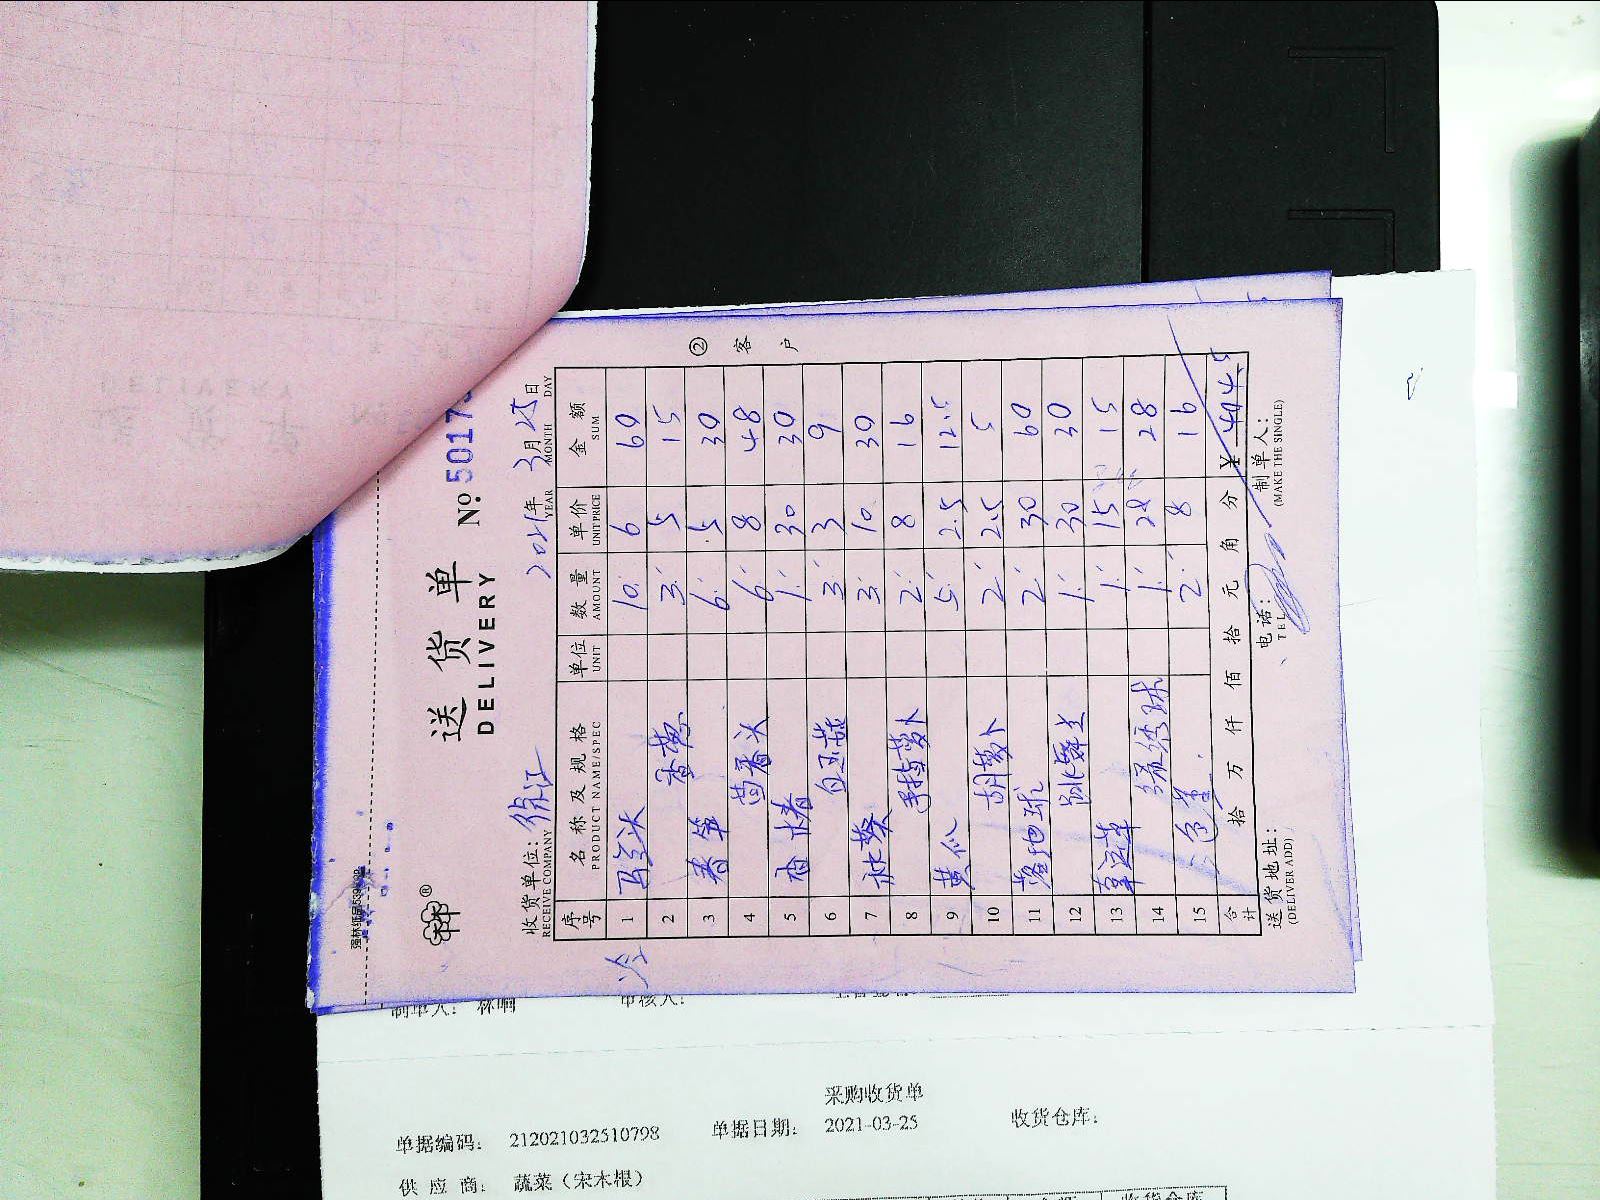 送货单
DELIVERY
No. 5017
② 客户
收货单位: 徐江 2021年 3月 25日
RECEIVE COMPANY YEAR MONTH DAY
序号 名称及规格 单位 数量 单价 金额
PRODUCT NAME/SPEC UNIT AMOUNT UNITPRICE SUM
1 马兰头 10 6 60
2 香葱 3 5 15
3 春笋 6 5 30
4 茴香头 6 8 48
5 香椿 1 30 30
6 白玉菇 3 3 9
7 秋葵 3 10 30
8 手指萝卜 2 8 16
9 黄瓜 5 2.5 12.5
10 胡萝卜 2 2.5 5
11 落地球 2 30 60
12 跳舞兰 1 30 30
13 1 15 15
14 绿绣球 1 28 28
15 2 8 16
合计 拾 万 仟 佰 拾 元 角 分 ¥ 404.5
送货地址: 电话: 制单人:
(DELIVER ADD) TEL (MAKE THE SINGLE)
制单人: 林响 审核人:
采购收货单
单据编码: 212021032510798 单据日期: 2021-03-25 收货仓库:
供应商: 蔬菜（宋木根）
收货仓库